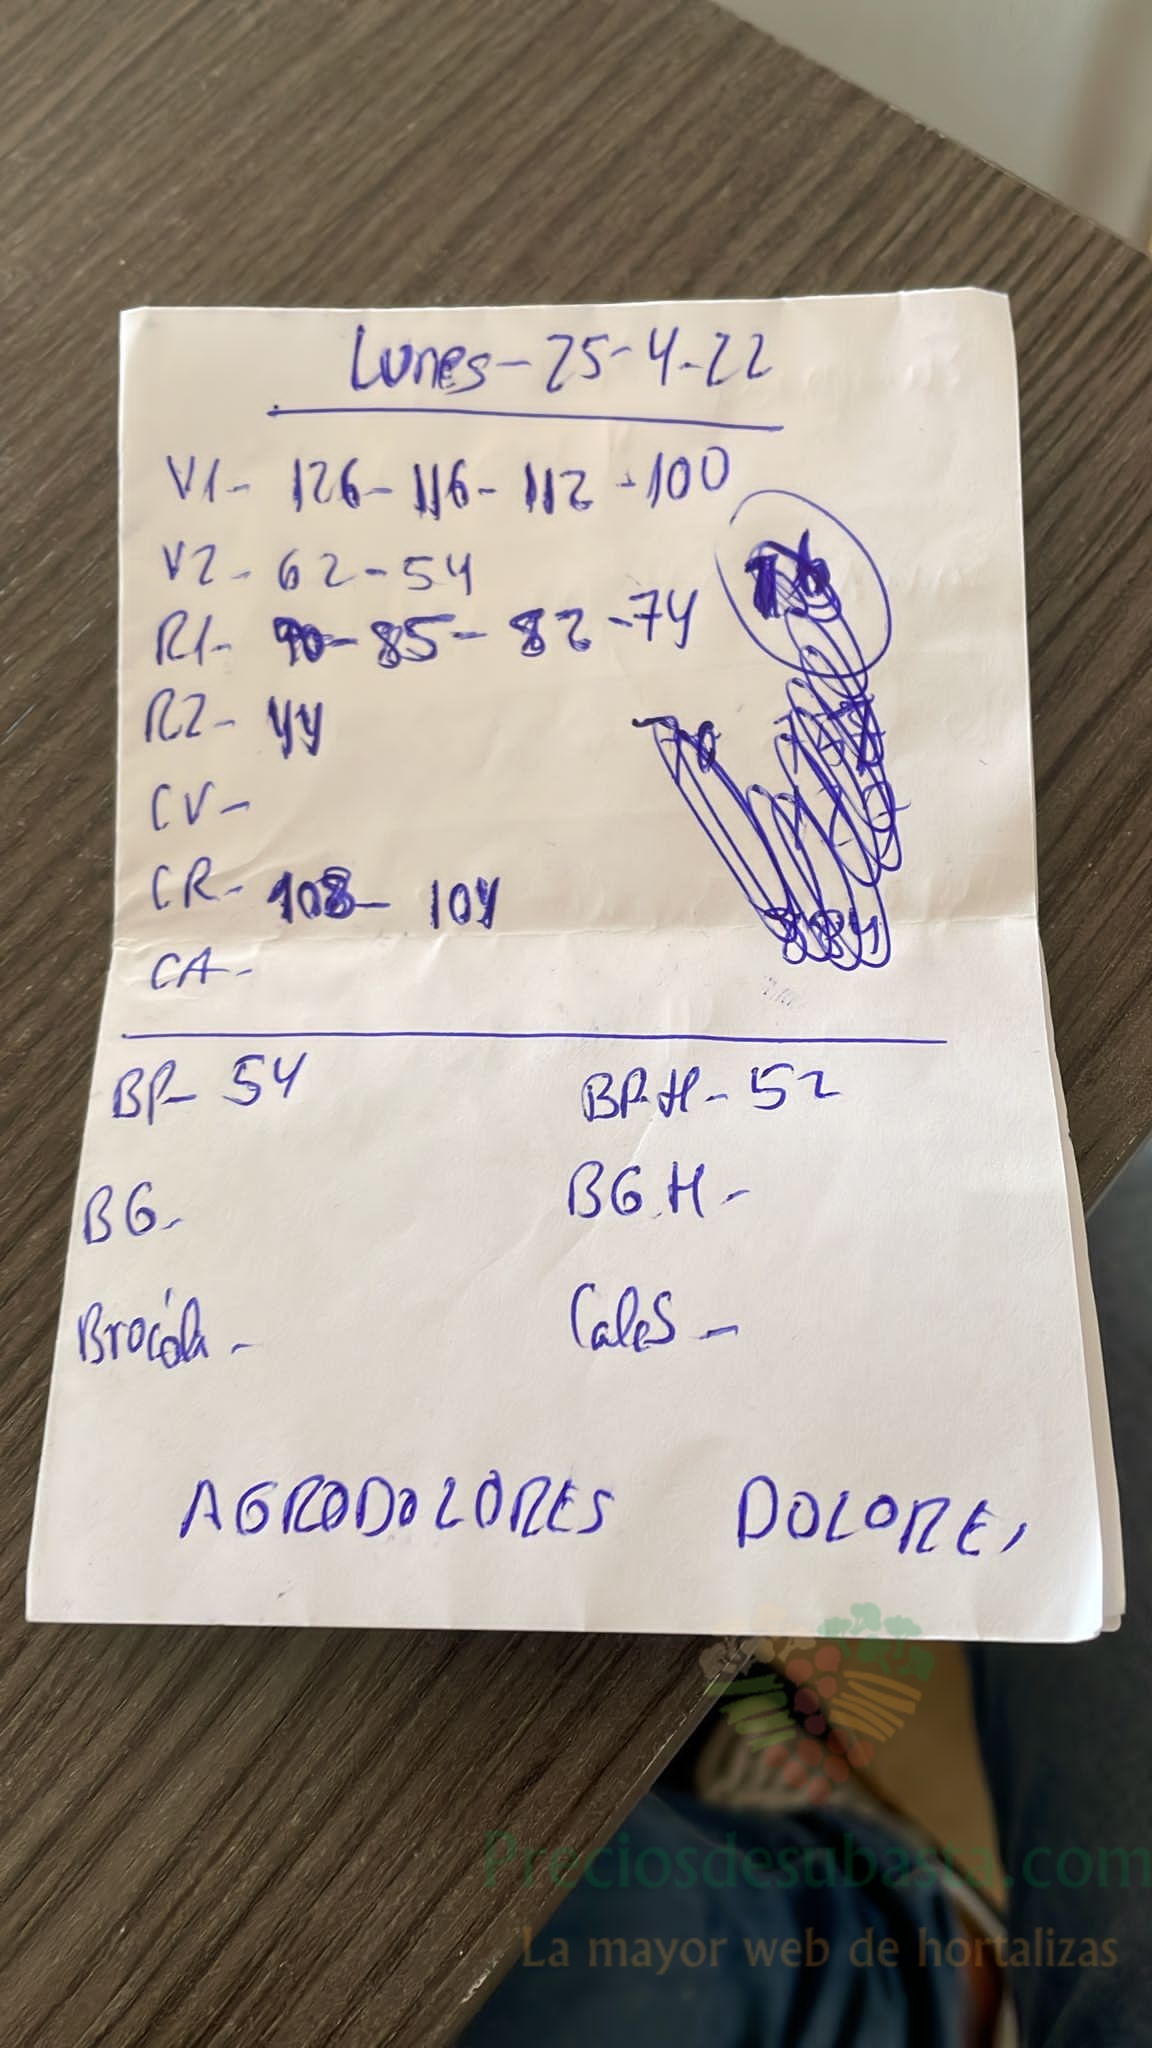 Lunes - 25-4-22
V1- 126-116-112-100
V2- 62-54
R1- 90-85-82-74
R2- 44
CV-
CR- 108- 104
CA-
BP- 54 BP.H- 52
BG- BG.H-
Brócoli - Cales -
AGRODOLORES DOLORES
Preciosdesubasta.com
La mayor web de hortalizas